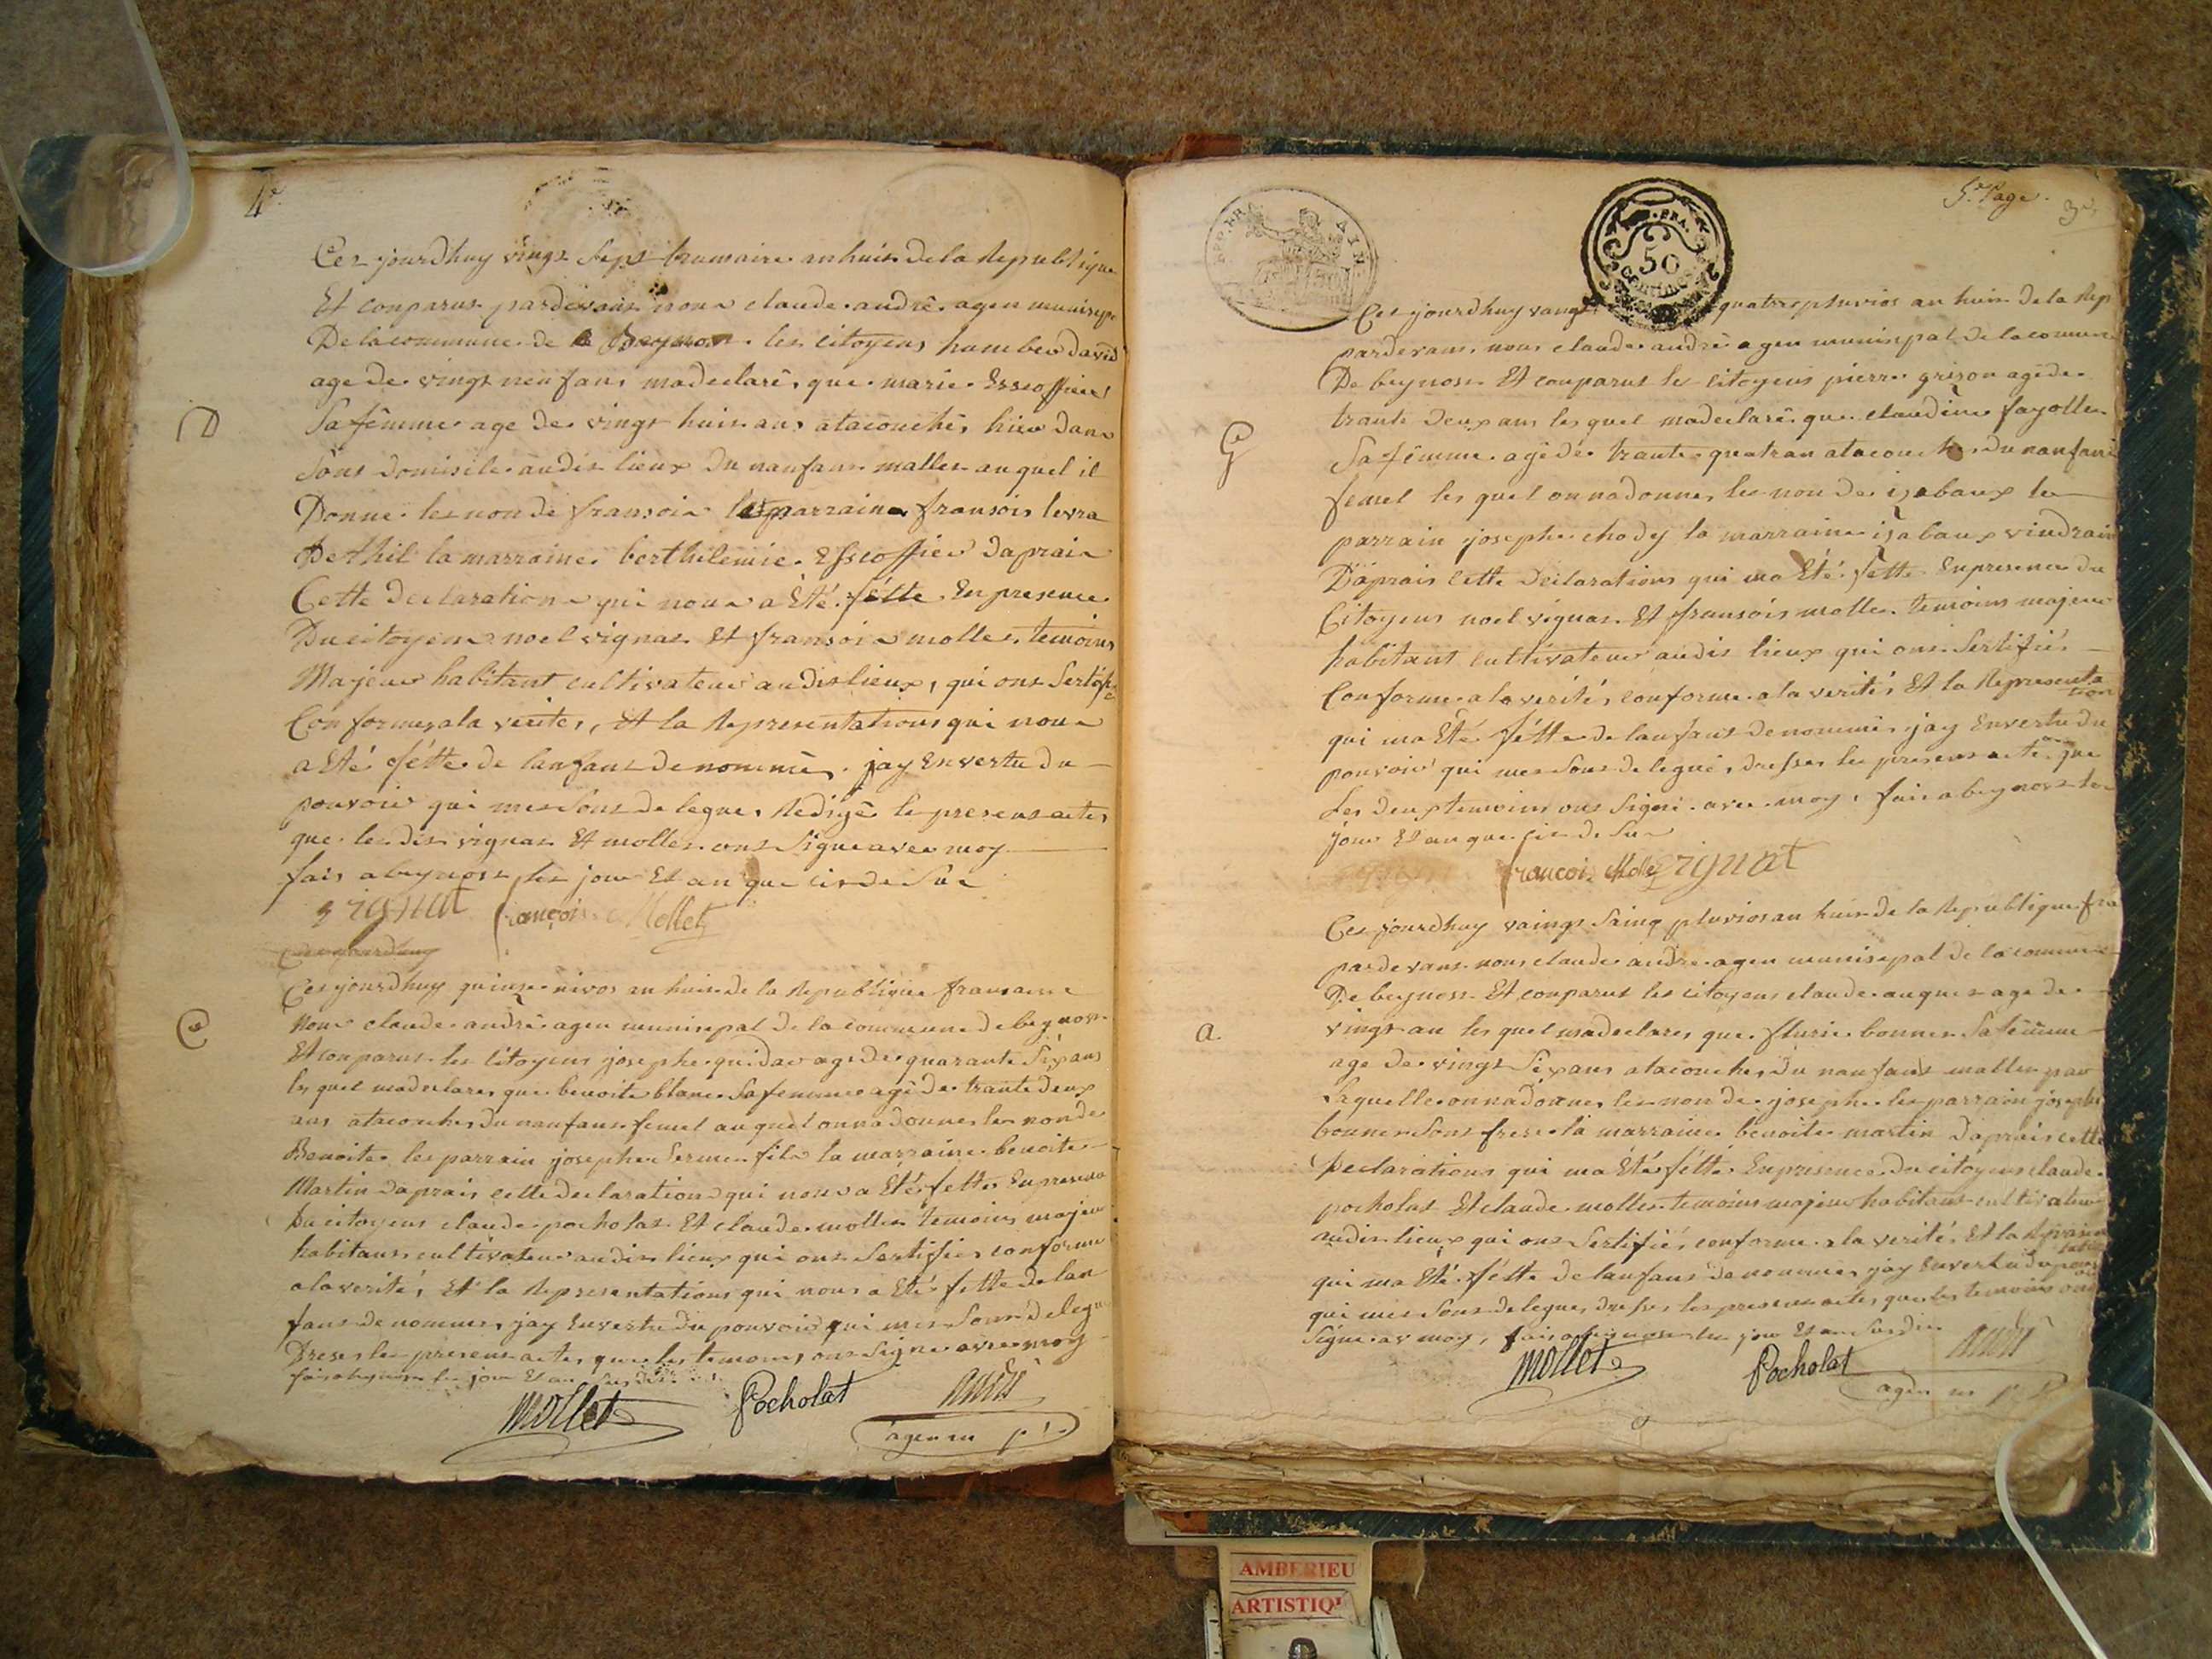 4e
Cez jourdhuy vingt sept brumaire an huit de la Republique
Et conparus pardevant nous claude andrê agen munisipa
De la commune de Beynost les citoyens humber david
age de vingt neuf ans madeclarê que marie Escoffier
D
Sa femme age de vingt huit ans atacouchés hier dans
Sons domisile audit lieux du nanfant malle auquel il
Donne le non de fransois le parrain fransois levra
De thil la marraine berthilemie Esscoffier daprais
Cette declaration qui nous a Eté fétte En presence
Du citoyens noel vignat Et fransois molles temoins
Majeur habitant cultivateur audit lieux, qui ont Sertifie
Conformes ala verites, Et la Representations qui nous
a Eté fétte de lanfant denommé, jay En vertu du
pouvoir qui mes sont delegues Redigê le present actes
que les dis vignat Et molles ont Signe avec moy
fais a beynost les jour Et an que cis de Sus
vignat francois Mollet
Cez jourdhuy
Ces jourdhuy quinze nivos an huit de la Republique fransaise
C
Nous claude andrê agen munisepal de la commune de beynost
Et conparus les citoyens josephe quidar age de quarante Six ans
les quel madeclares que benoite blanc Sa femme agé de trante deux
ans atacouches du nanfant femel auquel onna donnes le non de
Benoite les parrain josephe Serme fils la marraine benoite
Martin daprais cette declarations qui nous a Eté fettes En presence
Du citoyens claude pocholat Et claude molles temoins majeur
habitans cultivateur audit lieux qui ont Sertifies conforme
ala verité, Et la Representations qui nous a Eté fette de lan
fant denommes jay En vertu du pouvoir qui mes Sont delegue
Dreses les present actes que les temoins ont Signe avec moy
fais a beynost les jour Et an
Mollet Pocholat andrê
agen m pl
5e Page
3e
REP. FRA. AYN
REP. FRA.
50
CENTIMES
Ces jourdhuy vangt quatre pluvios an huit de la Rep
pardevant nous claude andrê agen munispal de la comune
De beynost Et conparus les citoyens pierre grizon agé de
trante deux ans les quel madeclarê que claudine fayolle
G
Sa femme agé dé trante quatran atacouches du nanfant
femel les quel onna donnes les non de izabaux le
parrain josephe chody la marraine izabaux vindrain
D'aprais cette Declarations qui ma Eté fette En presence du
Citoyens noel vignat Et fransois molles temoins majeur
habitant cultivateur audit lieux qui ont Sertifiés
Conforme a la verités conforme a la verités Et la Representa
tion
qui ma Eté fétte de lanfant denommés jay En vertu du
pouvoir qui mes sont delegué, dresses les present acte que
Les deux temoins ont Signé avec moy, fais a beynost les
jour Et an que cis de Sus
francois Mollet vignat
Ces jourdhuy vaingt Sainq pluvios an huit de la Republique fra
pardevant nous claude andre agen munisepal de la commune
De beynost Et conparus les citoyens claude auguet age de
a
vingt an les quel madeclares que flurie bonnet Sa femme
age de vingt Six ans atacouches du nanfant malles par
Laquelle onna donnes les non de josephe les parrain josephe
bonnet Sont frere la marraine benoite martin Daprais cette
Declarations qui ma Eté fétte En presence du citoyens claude
pocholat Et claude molles temoins majeur habitans cultivateur
audit lieux qui ont Sertifiés conforme a la verités Et la Represen
tation
qui ma Eté fétte de lanfant denommés jay En vertu du pouvoir
qui mes Sont delegues dresses les present actes que les temoins ont
Signe av moy, fais a beynost les jour Et an Susdit
Mollet Pocholat andrê
agen m pl
AMBERIEU
ARTISTIQ